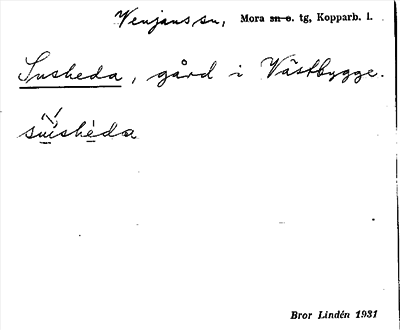 Venjans sn, Mora sn o. tg, Kopparb. l.
Snisheda, gård i Västbygge.
Bror Lindén 1931